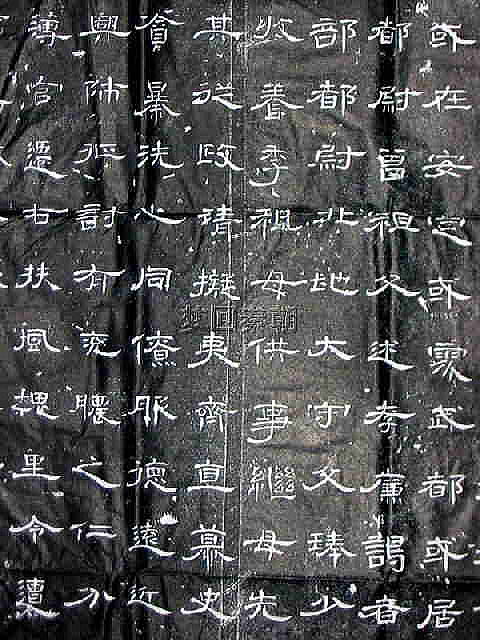 或在安定或處武都或居
都尉曾祖父述孝廉謁者
部都尉北地大守父琫少
收養季祖母供事繼母先
其從政清擬夷齊直慕史
貪暴洗心同僚服德遠近
興師征討有兗膿之仁分
簿官遷右扶風槐里令遭